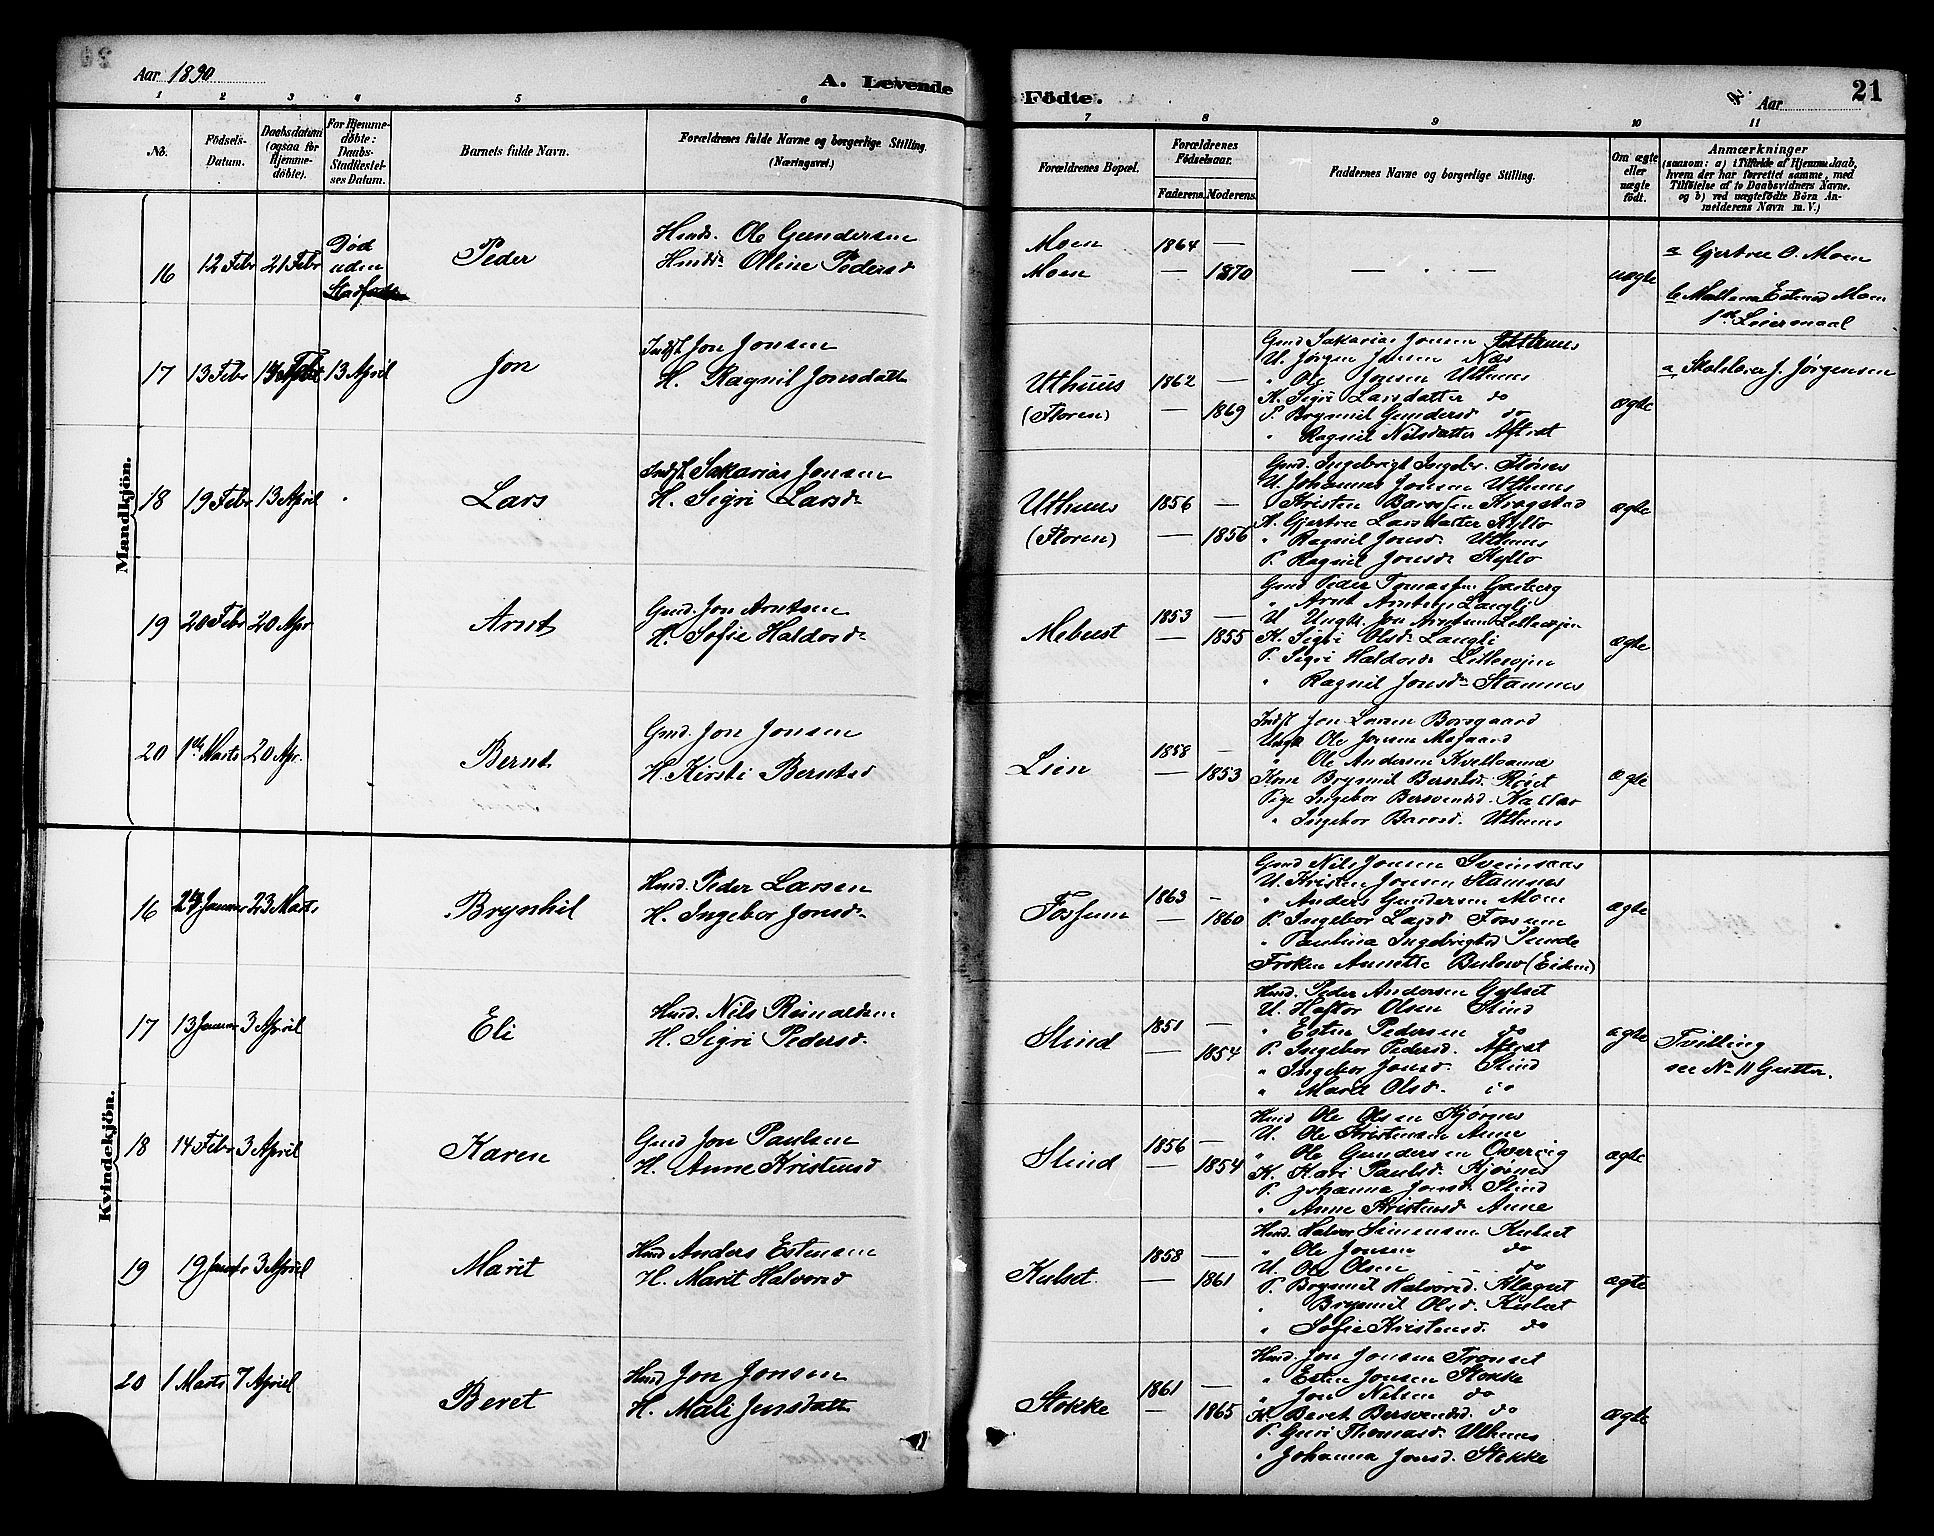 Aar 1890
A. Levende
Födte.
Aar
21
1 2 3 4 5 6 7 8 9 10 11
No.
Födsels-Datum.
Daabsdatum (ogsaa for Hjemme-döbte).
For Hjemme-döbte: Daabs-Stadfæstel-ses Datum.
Barnets fulde Navn.
Forældrenes fulde Navne og borgerlige Stilling. (Næringsvei.)
Forældrenes Bopæl.
Forældrenes Födselsaar.
Faderens. Moderens.
Faddernes Navne og borgerlige Stilling.
Om ægte eller uægte födt.
Anmærkninger
(saasom: a) i Tilfælde af Hjemme Daab, hvem der har forrettet samme, med Tilföielse af to Daabsvidners Navne. og b) ved uægtefödte Börn An-melderens Navn m. V.)
Mandkjön.
16 12 Febr 21 Febr Död uden Peder
Ole Gundersen
Oline Pedersd
Moen 1864 —
Moen — 1870
— " —
uægte
a Gjertru O. Moen
b Estensd Moen
1st Leiermaal
17 13 Febr 13 April Jon
Indst Jon Jonsen
H. Ragnil Jonsdatt
Uthuus 1862 —
(Floren) — 1869
Gmd Sakarias Jonsen Uthuus
U. Jörgen Jonsen Næs
" Ole Jonsen Uthuus
K. Sigri Larsdatter do
P. Brynnil Gundersd do
" Ragnil Nilsdatter Aftret
ægte
a, J. Jörgensen
18 19 Febr 13 April Lars
Indst Sakarias Jonsen
H. Sigri Larsdr
Uthuus 1856 —
(Floren) — 1856
Gmd. Ingebrigt Ingebr. Flönes
U. Johannes Jonsen Uthuus
" Kristen Baros̃en Kragstad
K. Gjertru Larsdatter Kyllo
" Ragnil Jonsd. Uthuus
P. Ragnil Jonsdr Kyllo
ægte
19 20 Febr 20 Apr Arnt
Gmd. Jon Arntsen
H. Sofie Haldorsdr
Mebust 1853 —
— 1855
Gmd Peder Tomassen Garberg
" Arnt Arntsen Langli
U Ungk. Jon Arntsen Lillevojen
K. Sigri Olsdr Langli
P. Sigri Haldorsdr Lillevojen
" Ragnil Jonsdr Stamnes
ægte
20 1ste Marts 20 Apr. Bernt
Gmd. Jon Jonsen
H. Kirsti Berntsd
Lien 1858 —
— 1853
Indst Jon Larsen Borsgaard
Ungk Ole Jonsen Mogaard
" Ole Andersen
Kone Brynnil Berntsd. Röset
Pige Ingebor Bersvendsd.
" Ingebor Barosd. Uthuus
ægte
Kvindekjön.
16 Januar 23 Marts Brynhil
Hmd. Peder Larsen
H. Ingebor Jonsdr
Fossum 1863 —
— 1860
Gmd Nils Jonsen Sveinsaas
U. Kristen Jonsen Stamnes
" Anders Gundersen Moen
P. Ingebor Larsd Fossum
" Paulina Ingebrigtsd Sunde
Fröken Annette Bulow (Eidem)
ægte
17 13 Januar 3 April Eli
Hmd. Nils Reinaldsen
H. Sigri Pedersd.
Slind 1851 —
— 1854
Hmd. Peder Andersen Gylset
U. Haftor Olsen Slind
" Esten Pedersen do
P. Ingebor Pedersd. Aftret
" Ingebor Jonsd. Slind
" Marit Olsd. do
ægte
Tvilling
see No 11 Gutter.
18 14 Febr 3 April Karen
Gmd Jon Paulsen
H. Anne Kristensd
Slind 1856 —
— 1854
Hmd Ole Olsen Kjörnes
U. Ole Kristensen Aune
" Ole Gundersen Overvig
K. Kari Paulsd. Kjörnes
P. Johanna Jonsd. Slind
" Anne Kristensd Aune
ægte
19 19 Januar 3 April Marit
Hmd Anders Estensen
H. Marit Halvorsd
Kulset 1858 —
— 1861
Hmd. Halvor Simensen Kulset
" Ole Jonsen do
U. Ole Olsen do
P. Brynnil Halvorsd. Klegset
" Brynnil Olsd. Kulset
" Sofie Kristensd. do
ægte
20 1 Marts 7 April Beret
Hmd Jon Jonsen
H. Mali Jonsdatt
Stokke 1861 —
— 1865
Hmd. Jon Jonsen Tronset
" Esten Jonsen Stokke
" Jon Nilsen do
K. Beret Bersvendsd. do
P. Guri Thomasd. Uthuus
" Johanna Jonsd. Stokke
ægte